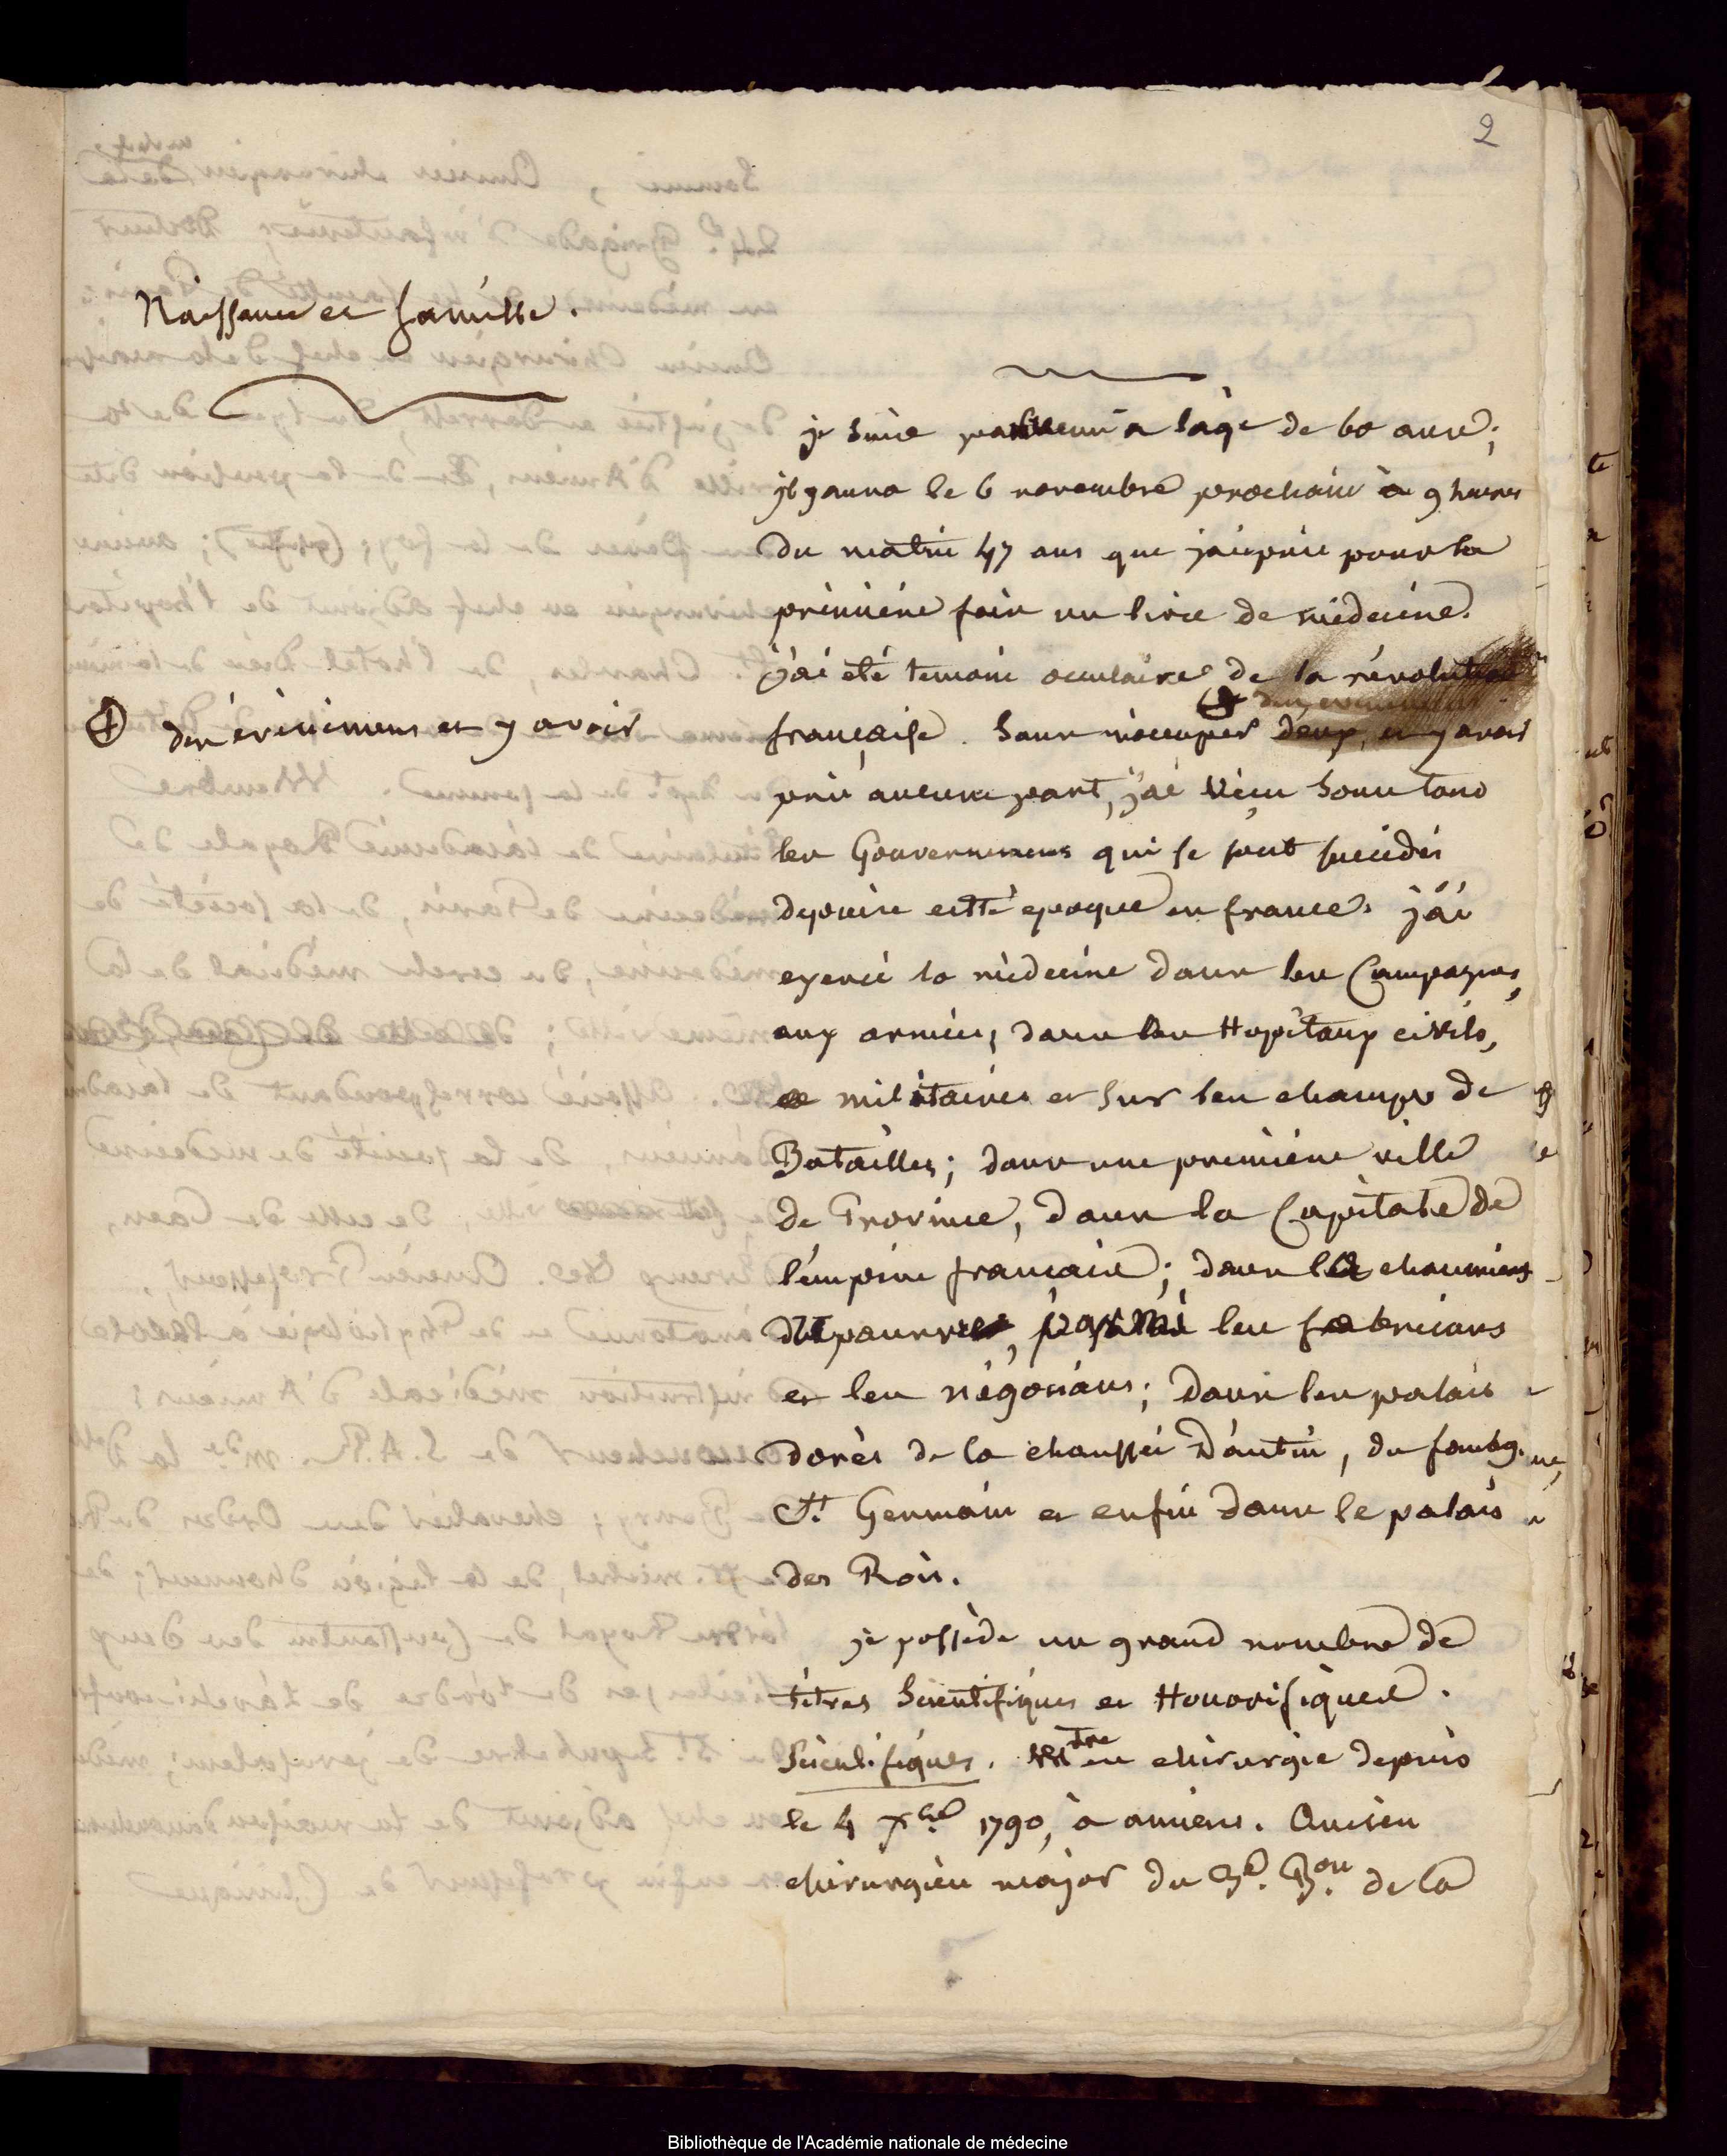 2
Naissance et famille.
je suis parvenu a lage de 60 ans;
il y aura le 6 novembre prochain à 9 heures
du matin 47 ans que j'ai pris pour la
première fois un livre de médecine.
j'ai été temoin occulaire de la révolution
des évènemens
⊕ des évènimens et y avoir
française. Sans m'occuper deux, et y avoir
pris aucune part, j'ai vécu sous tous
les Gouvernemens qui se sont succédés
depuis cette epoque en france. j'ai
exercé la médecine dans les Campagnes,
aux armées, dans les Hopitaux civils,
militaires et sur les champs de
Batailles; dans une première ville
de Province, dans la Capitale de
l'empire français; dans les chaumières
du pauvre, parmi les fabricans
et les négocians; dans les palais
dorés de la chaussée D'antin, du faubg.
St. Germain et enfin dans le palais
des Rois.
je possède un grand nombre de
titres Scientifiques et Honorifiques.
Scientifiques. Mtre en chirurgie depuis
le 4 Xbre 1790, à amiens. Ancien
chirurgien major du 3e. Bon. de la
Bibliothèque de l'Académie nationale de médecine